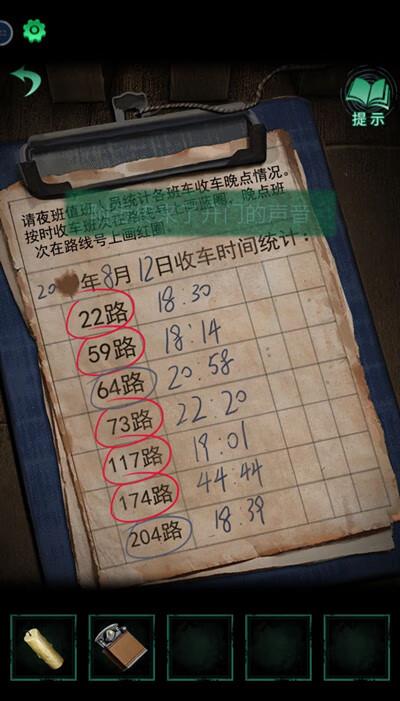 提示
请夜班值班人员统计各班车收车晚点情况。
按时收车班次在路线号上画蓝圈，晚点班
次在路线号上画红圈。
开门的声音
20 年8月12日收车时间统计：
22路 18:30
59路 18:14
64路 20:58
73路 22:20
117路 19:01
174路 44:44
204路 18:39